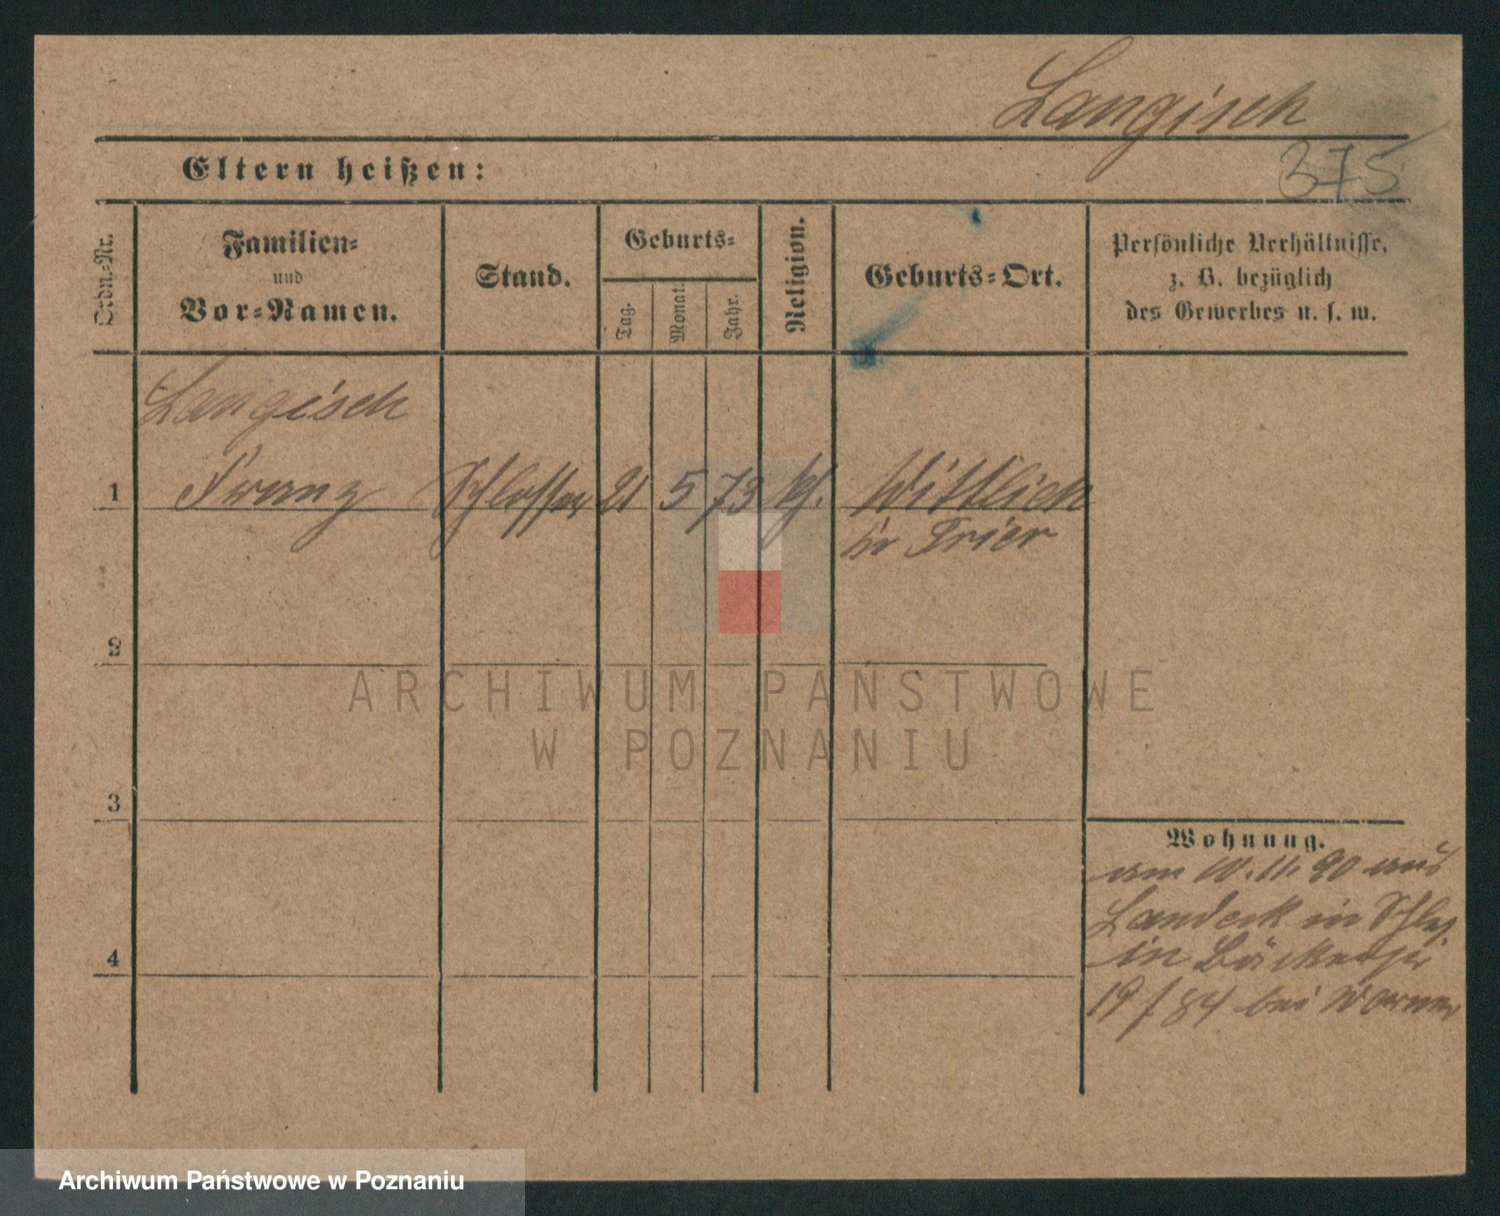 Langisch
Eltern heißen:
375
Ordn.-Nr.
Familien-
und
Vor-Namen.
Stand.
Geburts-
Tag.
Monat.
Jahr.
Religion.
Geburts-Ort.
Persönliche Verhältnisse,
z. B. bezüglich
des Gewerbes u. s. w.
Langisch
1 Franz Schlosser 21 5 73 Wittlich
Trier
2
3
4
Wohnung.
am 11. 90 aus
Landeck in Schles
in
19/84 bei Werner
ARCHIWUM PAŃSTWOWE
W POZNANIU
Archiwum Państwowe w Poznaniu